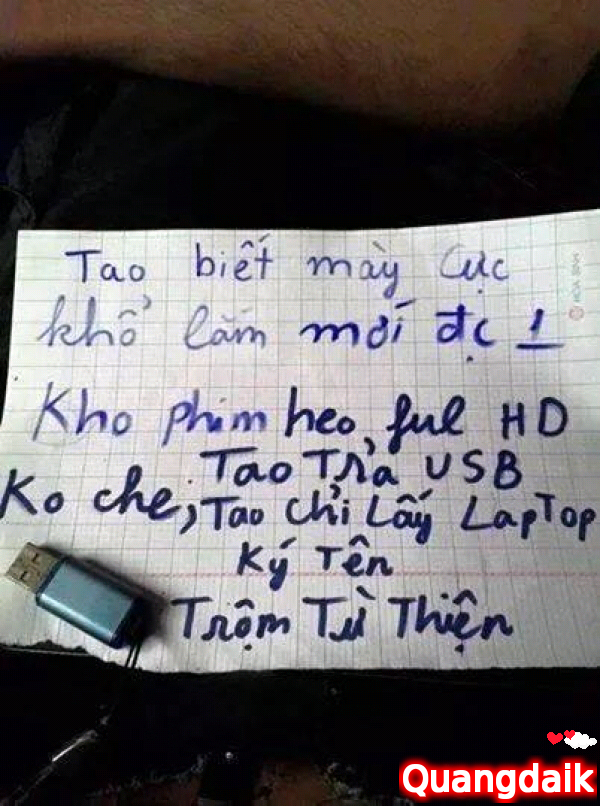 Tao biết mày cực
khổ lắm mới đc 1
Kho phim heo, ful HD
Ko che,
Tao Trả USB
Tao chỉ Lấy LapTop
Ký Tên
Trộm Từ Thiện
HÒA BÌNH
Quangdaik